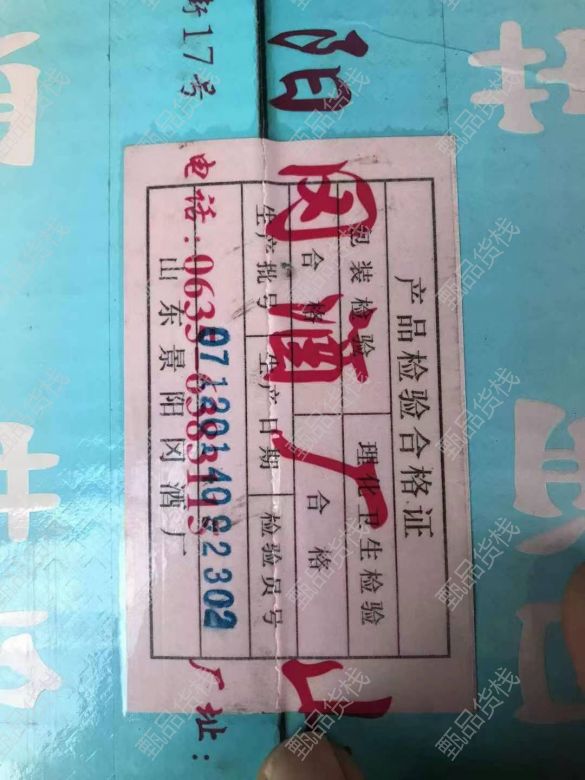 产品检验合格证
包装检验 理化卫生检验
合格 合格
生产批号 生产日期 检验员号
山东景阳冈酒厂
山
阳冈酒厂
厂址:
17号
电话:0635
甄品货栈